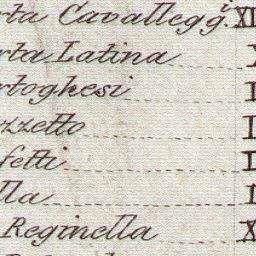 rta Cavallegg.ri XI
rta Latina
rtoghesi I
zzetto I
fetti I
lla I
Reginella X